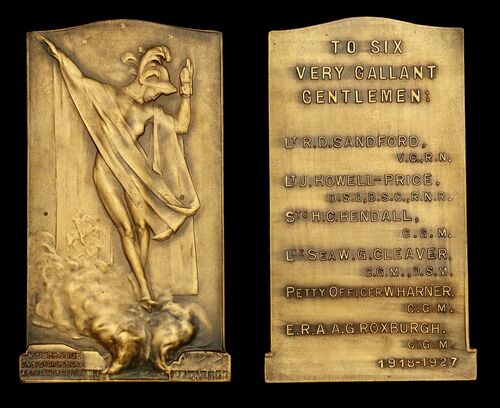 ZEEBRUGGE
ON ST GEORGE'S DAY
TO SIX
VERY GALLANT
GENTLEMEN:
LT R.D. SANDFORD,
V.C., R.N.
LT J. HOWELL-PRICE,
D.S.O, D.S.C., R.N.R.
STO H.C. BENDALL,
C.G.M.
LDG SEA W.G. CLEAVER,
C.G.M., D.S.M.
PETTY OFFICER W. HARNER,
C.G.M.
E.R.A. A.G. ROXBURGH.
C.G.M.
1918-1927